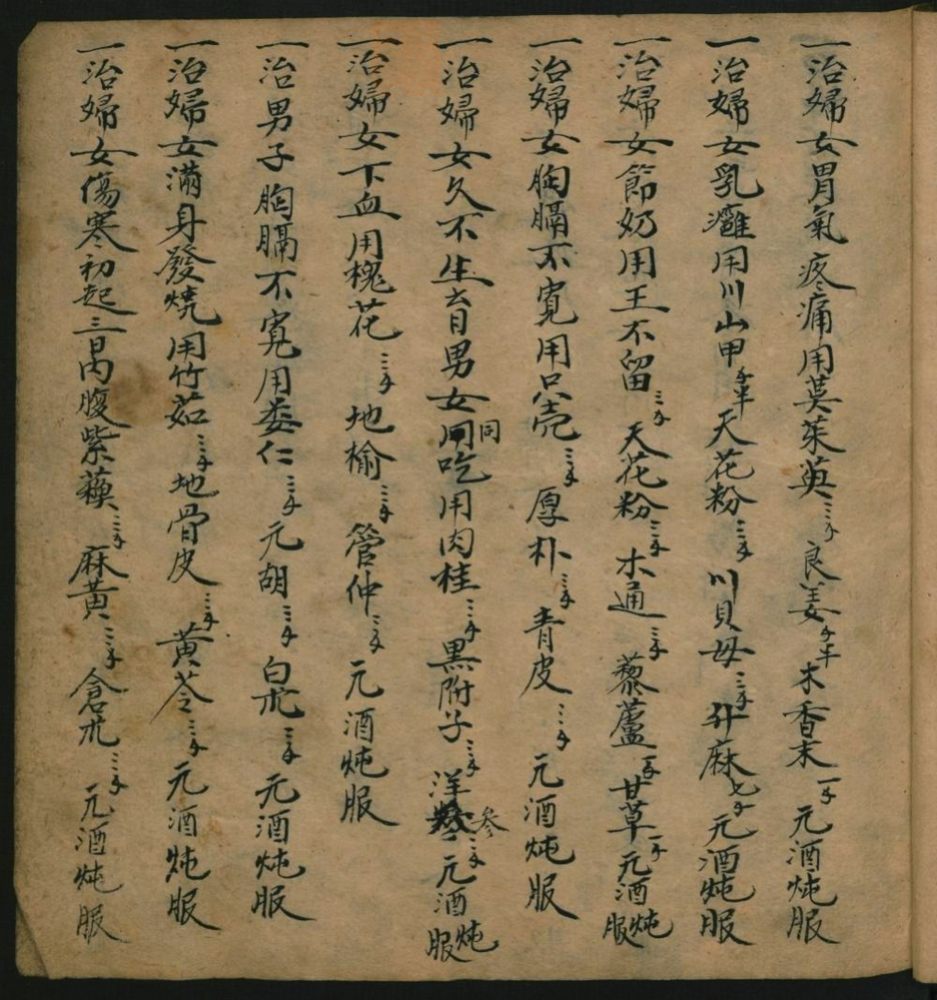 一治婦女胃氣疼痛用萸茱英三錢良姜錢半木香末一錢元酒炖服
一治婦女乳癰用川山甲錢半天花粉三錢川貝母三錢升麻七分元酒炖服
一治婦女節奶用王不留三錢天花粉三錢木通三錢藜蘆一錢甘草一錢元酒炖服
一治婦女胸膈不寬用只壳三錢厚朴三錢青皮三錢元酒炖服
一治婦女久不生育男女同吃用肉桂三錢黑附子三錢洋參三錢元酒炖服
一治婦女下血用槐花三錢地榆三錢管仲三錢元酒炖服
一治男子胸膈不寬用娄仁三錢元胡三錢白朮三錢元酒炖服
一治婦女滿身發燒用竹茹三錢地骨皮三錢黃芩三錢元酒炖服
一治婦女傷寒初起三日內服紫蘇三錢麻黃三錢倉朮三錢元酒炖服